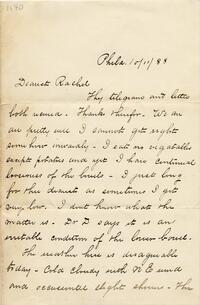 1140
Phila. 10/11/88
Dearest Rachel
Thy telegram and letter
both received. Thanks therefor. We
are pretty sure I cannot get right
some how inwardly. I eat no vegetables
except potatoes and yet I have continued
looseness of the bowels - I just long
for thee dearest as sometimes I get
very low. I don't know what the
matter is. Dr D. says it is an
irritable condition of the lower bowel.
The weather here is disagreeable
today - Cold cloudy with N E wind
and occasional slight showers - The